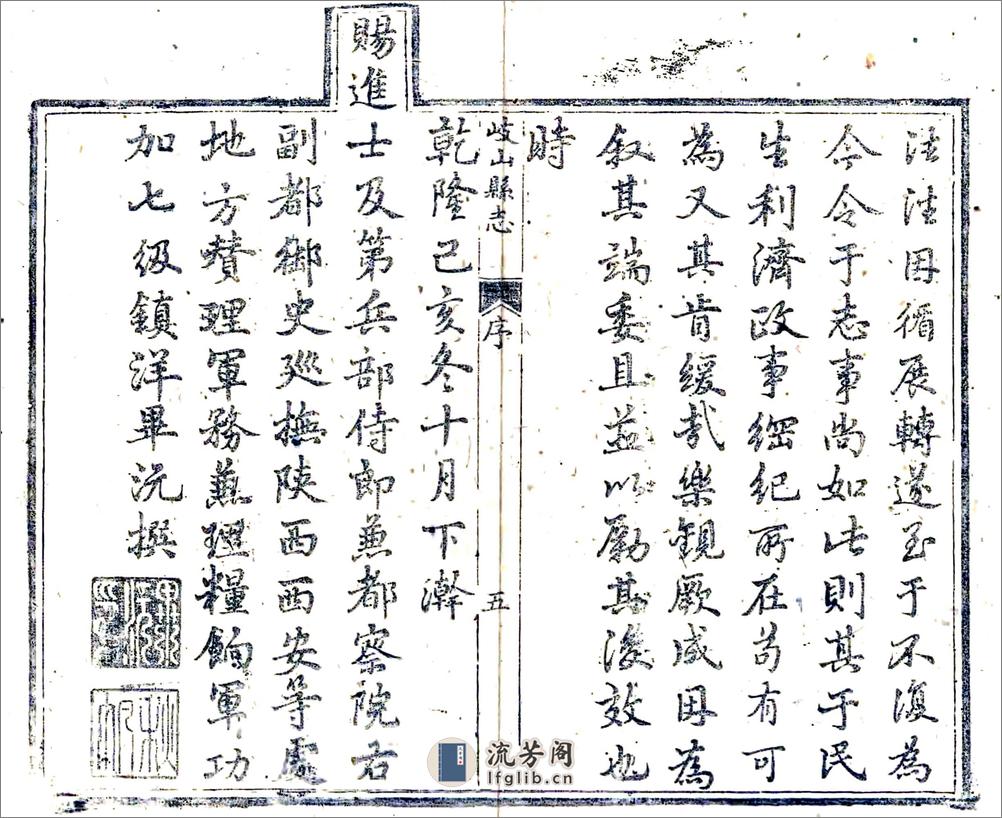 法法因循展轉遂至于不復為
今令于志事尚如此則其于民
生利濟政事綱紀所在苟有可
為又其肯緩哉樂觀厥成因為
叙其端委且益以勵其後效也
時
岐山縣志 序 五
乾隆己亥冬十月下澣
賜進士及第兵部侍郎兼都察院右
副都御史巡撫陝西西安等處
地方贊理軍務兼理糧餉軍功
加七級鎮洋畢沅撰
流芳阁
lfglib.cn